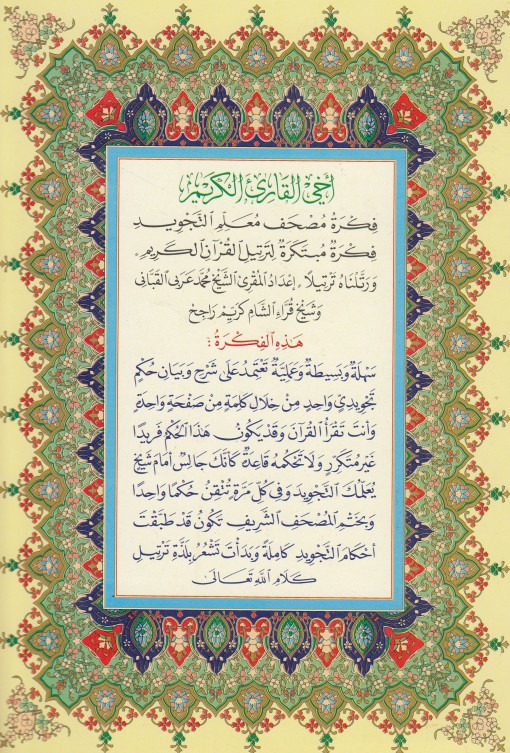 أخي القارئ الكريم
فِكْرَةُ مُصْحَف مُعَلِّم التَّجْوِيد
فِكْرَةٌ مُبْتَكَرَةٌ لِتَرتِيلِ القُرآنِ الكَرِيمِ،
وَرَتَّلْنَاهُ تَرْتِيلًا، إعْدَادُ المُقْرِئ الشَّيْخ مُحَمَّد عَرَبي القَبَّاني
وَشَيْخ قُرَّاءِ الشَّام كَرَيِّم رَاجِح
هٰذِهِ الفِكْرَةُ:
سَهْلَةٌ وَبَسِيطَةٌ وَعَمَلِيَّةٌ تَعْتَمِدُ عَلَى شَرْحِ وَبَيَانِ حُكْمٍ
تَجْوِيدِيٍّ وَاحِدٍ مِنْ خِلَالِ كَلِمَةٍ مِنْ صَفْحَةٍ وَاحِدَةٍ
وَأنْتَ تَقْرَأُ القُرآنَ وَقَدْ يَكُونُ هٰذَا الحُكْمُ فَرِيدًا
غَيْرَ مُتَكَرِّرٍ وَلَا تَحْكُمُهُ قَاعِدَةٌ كَأَنَّكَ جَالِسٌ أمَامَ شَيْخٍ
يُعَلِّمُكَ التَّجْوِيدَ وَفِي كُلِّ مَرَّةٍ تُتْقِنُ حُكْمًا وَاحِدًا
وَبِخَتْمِ المُصْحَفِ الشَّرِيفِ تَكُونُ قَدْ طَبَّقْتَ
أحْكَامَ التَّجْوِيدِ كَامِلَةً وَبَدَأتَ تَشْعُرُ بِلَذَّةِ تَرْتِيلِ
كَلَامِ اللَّهِ تَعَالَى